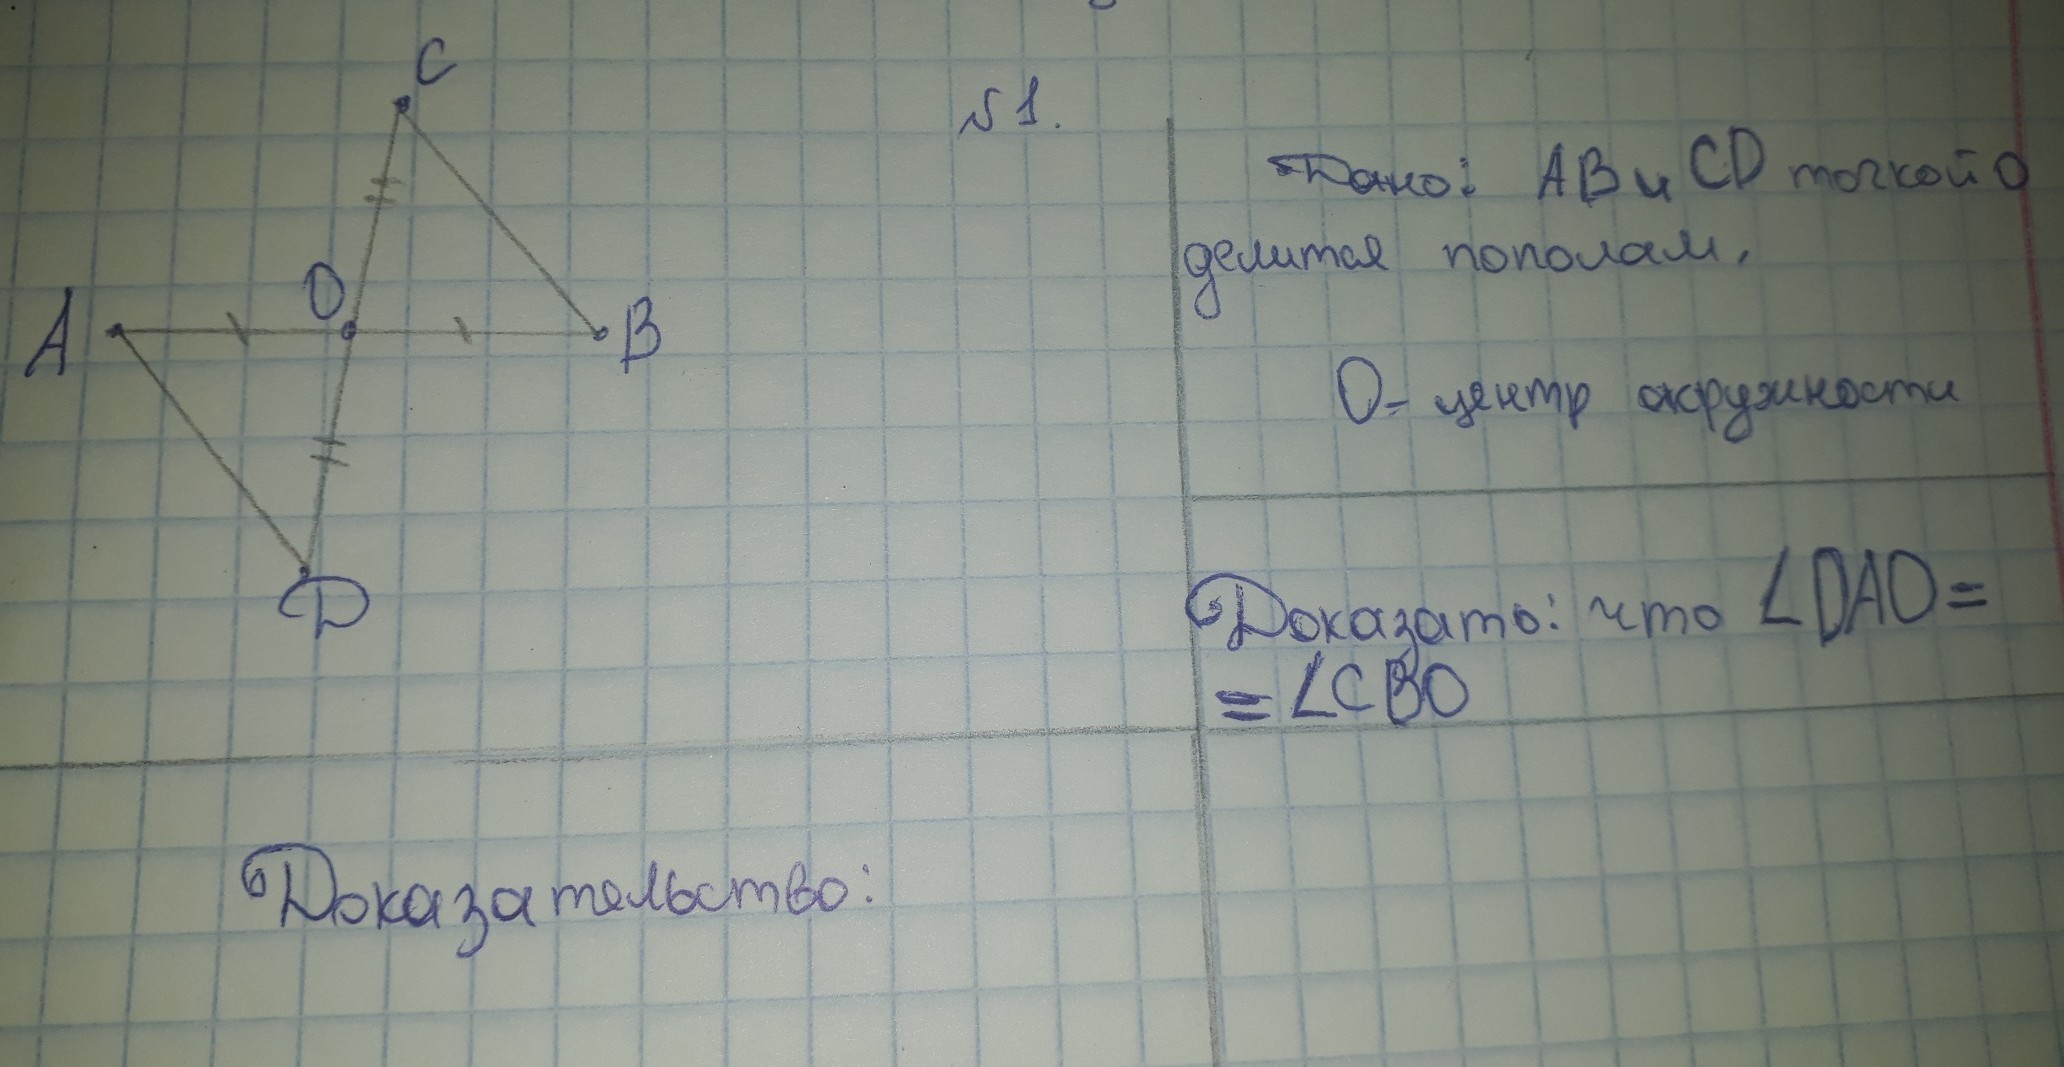 C
N 1.
Дано: AB и CD точкой O
делится пополам.
O
A
B
O - центр окружности
D
Доказать: что ∠DAO =
= ∠CBO
Доказательство: